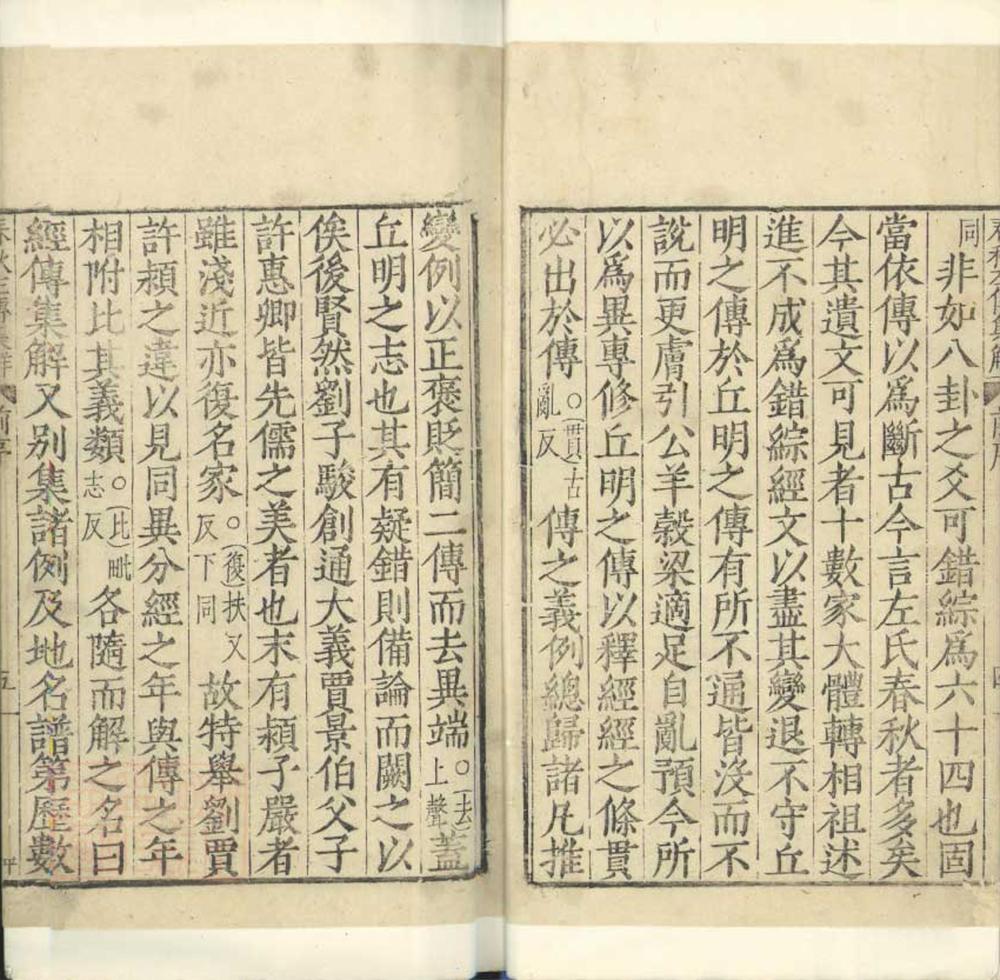 同非如八卦之爻可錯綜爲六十四也固
當依傳以爲斷古今言左氏春秋者多矣
今其遺文可見者十數家大體轉相祖述
進不成爲錯綜經文以盡其變退不守丘
明之傳於丘明之傳有所不通皆沒而不
說而更膚引公羊榖梁適足自亂預今所
以爲異專修丘明之傳以釋經經之條貫
必出於傳○(貫)古亂反傳之義例總歸諸凡推
變例以正褒貶簡二傳而去異端○(去)上聲蓋
丘明之志也其有疑錯則備論而闕之以
俟後賢然劉子駿創通大義賈景伯父子
許惠卿皆先儒之美者也末有潁子嚴者
雖淺近亦復名家○(復)扶又反下同故特舉劉賈
許潁之違以見同異分經之年與傳之年
相附比其義類○(比)毗志反各隨而解之名曰
經傳集解又別集諸例及地名譜第歷數